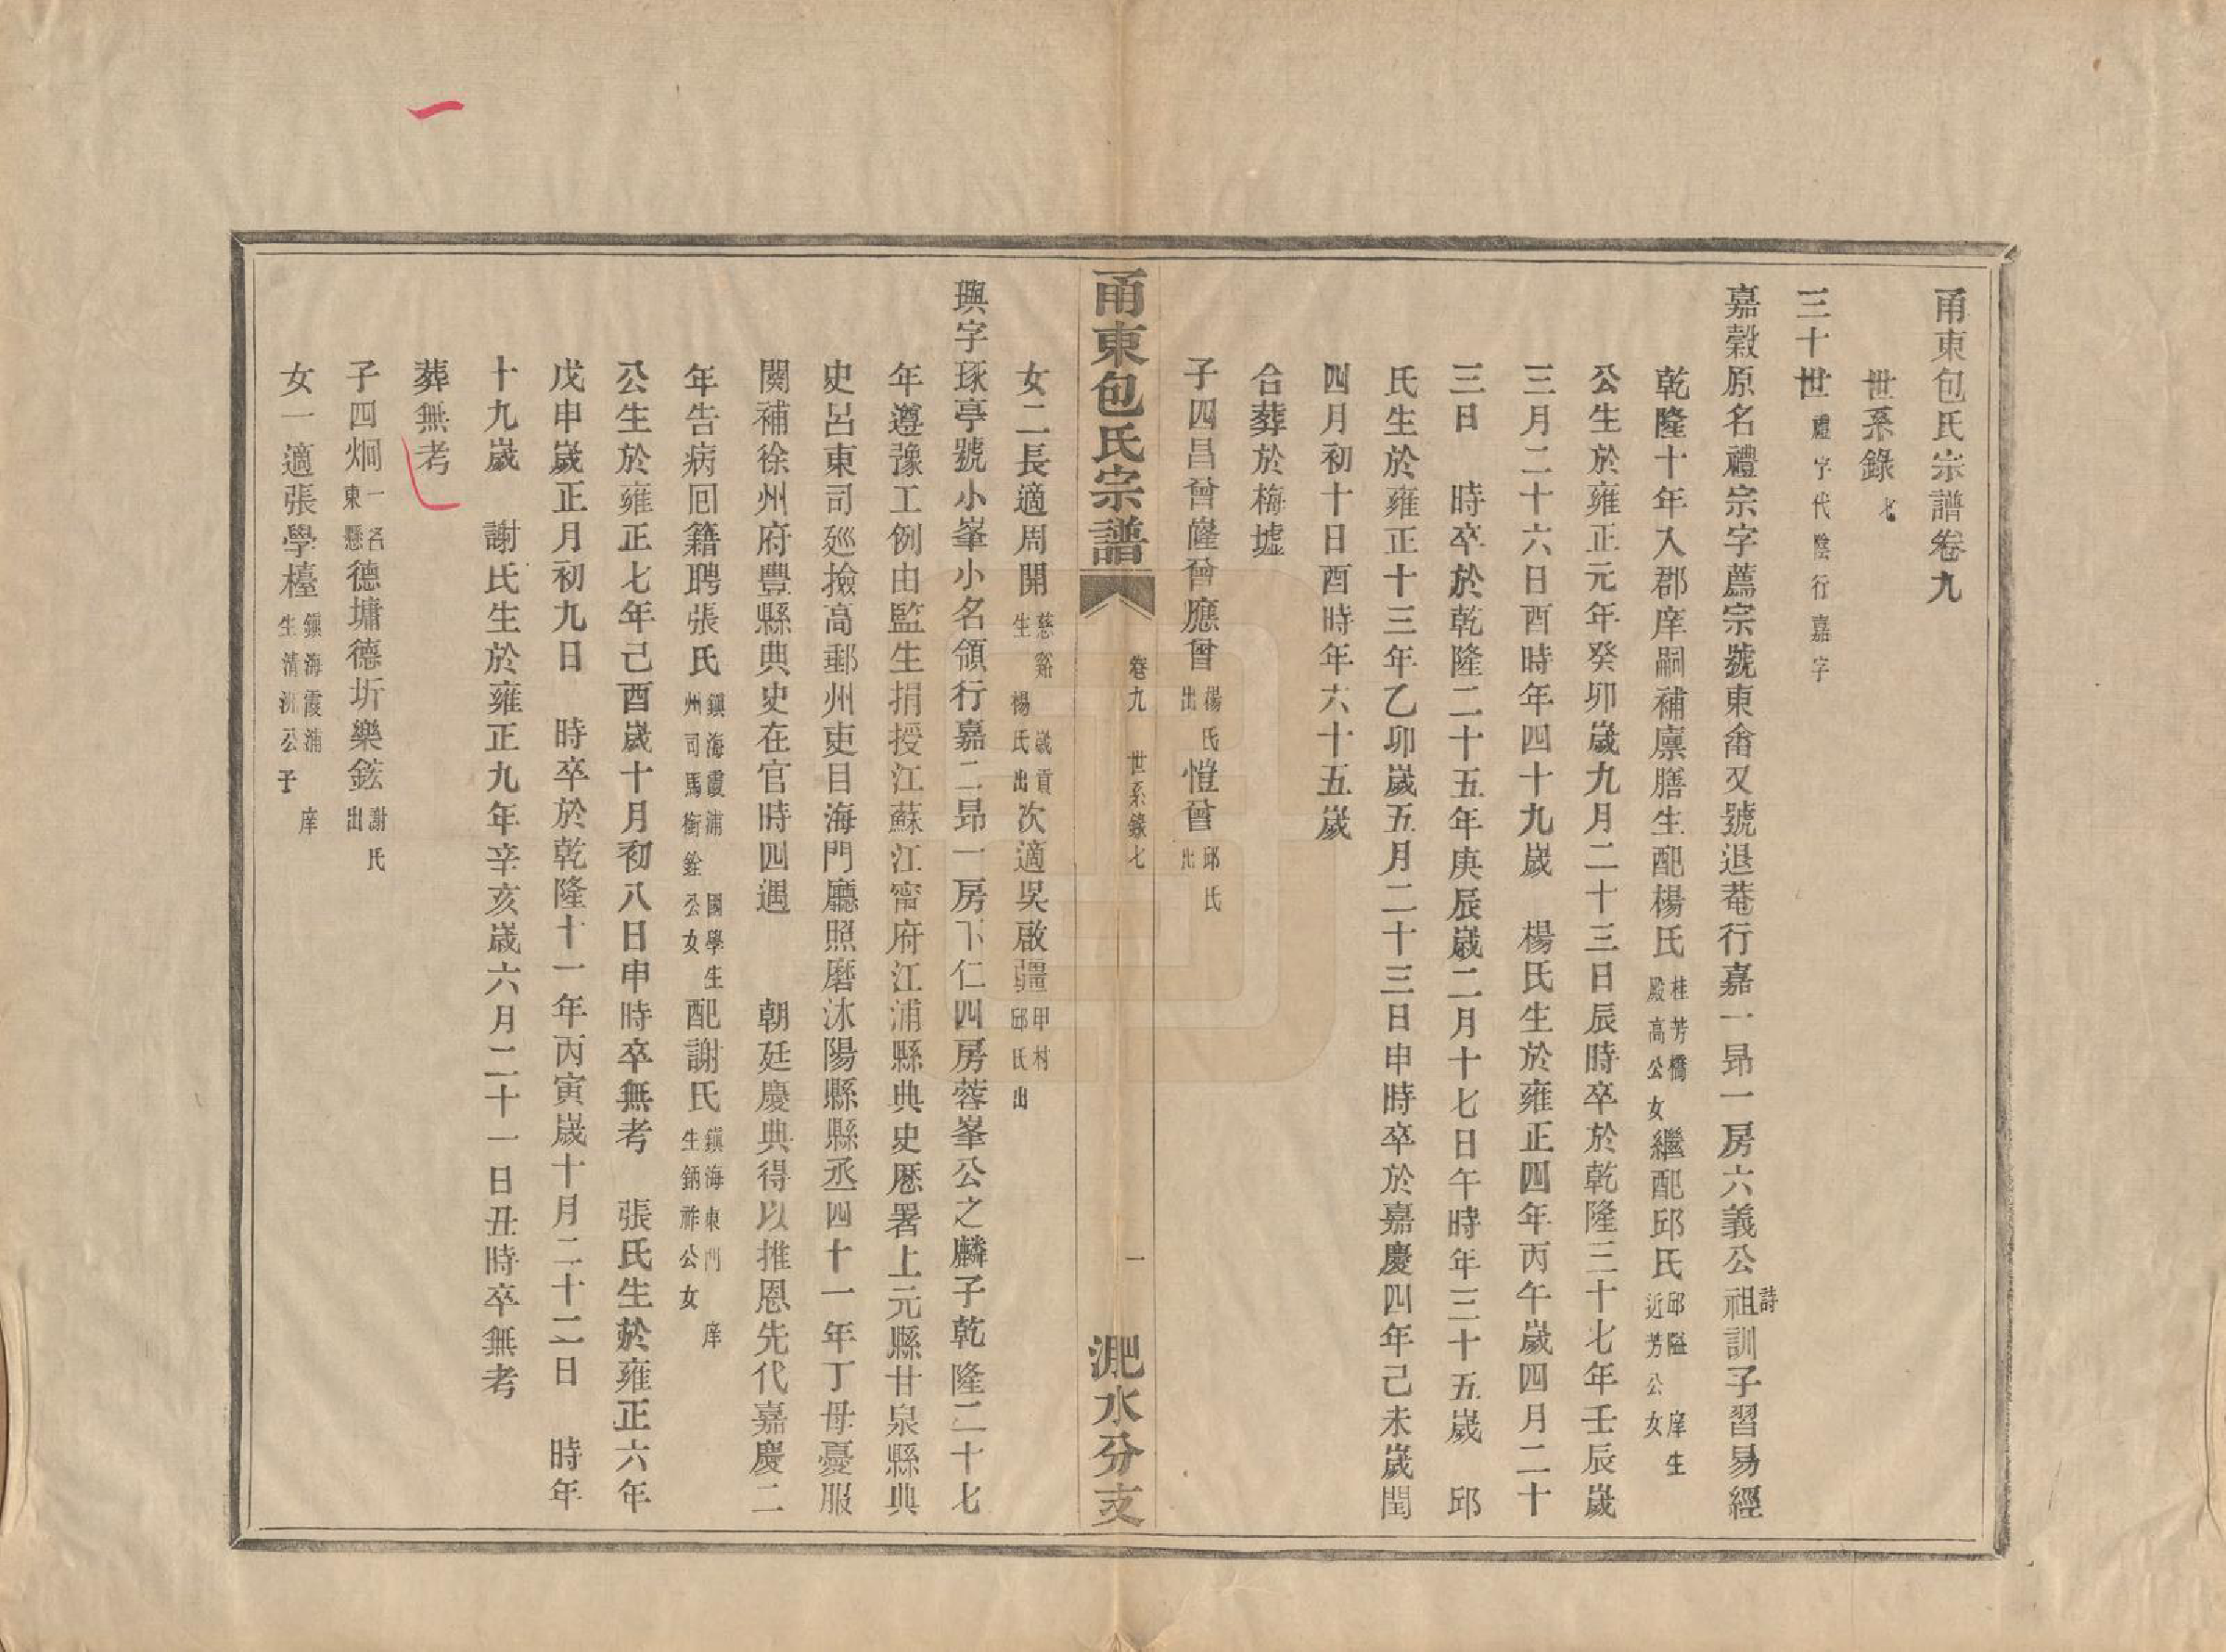 甬東包氏宗譜卷九
世系錄七
三十世禮字代陰行嘉字
嘉穀原名禮宗字薦宗號東畬又號退菴行嘉一昻一房六義公詩祖訓子習易經
乾隆十年入郡庠嗣補廩膳生配楊氏桂芳橋殿高公女繼配邱氏邱隘庠生近芳公女
公生於雍正元年癸卯歲九月二十三日辰時卒於乾隆三十七年壬辰歲
三月二十六日酉時年四十九歲 楊氏生於雍正四年丙午歲四月二十
三日 時卒於乾隆二十五年庚辰歲二月十七日午時年三十五歲 邱
氏生於雍正十三年乙卯歲五月二十三日申時卒於嘉慶四年己未歲閏
四月初十日酉時年六十五歲
合葬於梅墟
子四昌曾隆曾應曾楊氏出愷曾邱氏出
甬東包氏宗譜 卷九 世系錄七 一 淝水分支
女二長適周開慈谿歲貢生楊氏出次適吳啟疆甲村邱氏出
璵字琢亭號小峯小名領行嘉二昻一房下仁四房蓉峯公之麟子乾隆二十七
年遵豫工例由監生捐授江蘇江甯府江浦縣典史歷署上元縣甘泉縣典
史呂東司巡撿高郵州吏目海門廳照磨沭陽縣縣丞四十一年丁母憂服
闋補徐州府豐縣典史在官時四遇 朝廷慶典得以推恩先代嘉慶二
年告病囘籍聘張氏鎭海霞浦國學生州司馬銜銓公女配謝氏鎭海東門庠生鈵祚公女
公生於雍正七年己酉歲十月初八日申時卒無考 張氏生於雍正六年
戊申歲正月初九日 時卒於乾隆十一年丙寅歲十月二十二日 時年
十九歲 謝氏生於雍正九年辛亥歲六月二十一日丑時卒無考
葬無考
子四炯一名東懸德墉德圻樂鋐謝氏出
女一適張學檯鎭海霞浦庠生清洲公子